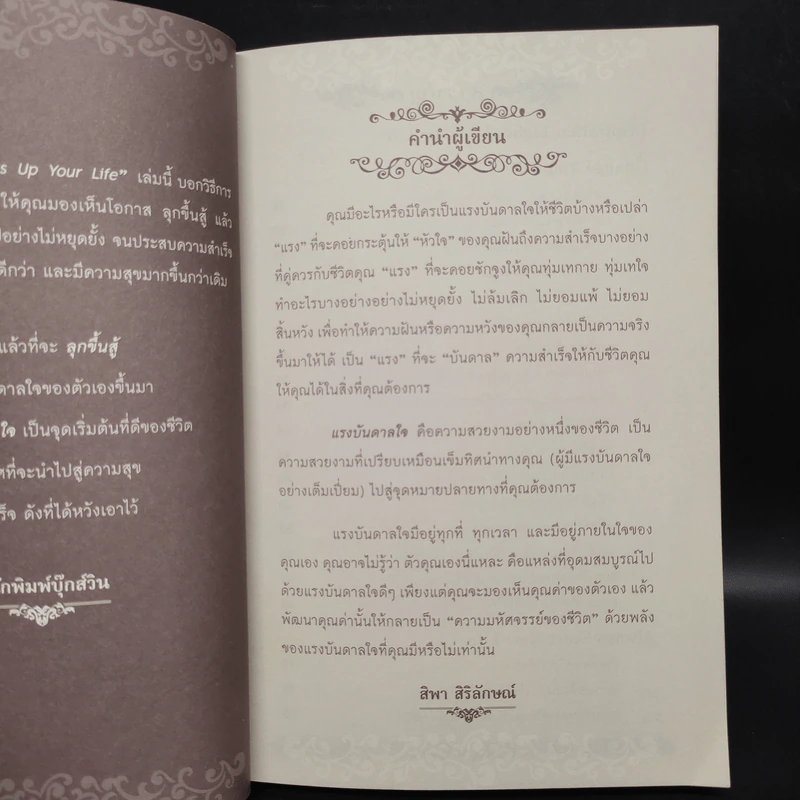 s Up Your Life” เล่มนี้ บอกวิธีการ
ให้คุณมองเห็นโอกาส ลุกขึ้นสู้ แล้ว
อย่างไม่หยุดยั้ง จนประสบความสำเร็จ
ดีกว่า และมีความสุขมากขึ้นกว่าเดิม
แล้วที่จะ ลุกขึ้นสู้
ดาลใจของตัวเองขึ้นมา
ใจ เป็นจุดเริ่มต้นที่ดีของชีวิต
ศที่จะนำไปสู่ความสุข
ร็จ ดังที่ได้หวังเอาไว้
ักพิมพ์บุ๊กส์วิน
คำนำผู้เขียน
คุณมีอะไรหรือมีใครเป็นแรงบันดาลใจให้ชีวิตบ้างหรือเปล่า
“แรง” ที่จะคอยกระตุ้นให้ “หัวใจ” ของคุณฝันถึงความสำเร็จบางอย่าง
ที่คู่ควรกับชีวิตคุณ “แรง” ที่จะคอยชักจูงให้คุณทุ่มเทกาย ทุ่มเทใจ
ทำอะไรบางอย่างอย่างไม่หยุดยั้ง ไม่ล้มเลิก ไม่ยอมแพ้ ไม่ยอม
สิ้นหวัง เพื่อทำให้ความฝันหรือความหวังของคุณกลายเป็นความจริง
ขึ้นมาให้ได้ เป็น “แรง” ที่จะ “บันดาล” ความสำเร็จให้กับชีวิตคุณ
ให้คุณได้ในสิ่งที่คุณต้องการ
แรงบันดาลใจ คือความสวยงามอย่างหนึ่งของชีวิต เป็น
ความสวยงามที่เปรียบเหมือนเข็มทิศนำทางคุณ (ผู้มีแรงบันดาลใจ
อย่างเต็มเปี่ยม) ไปสู่จุดหมายปลายทางที่คุณต้องการ
แรงบันดาลใจมีอยู่ทุกที่ ทุกเวลา และมีอยู่ภายในใจของ
คุณเอง คุณอาจไม่รู้ว่า ตัวคุณเองนี่แหละ คือแหล่งที่อุดมสมบูรณ์ไป
ด้วยแรงบันดาลใจดีๆ เพียงแต่คุณจะมองเห็นคุณค่าของตัวเอง แล้ว
พัฒนาคุณค่านั้นให้กลายเป็น “ความมหัศจรรย์ของชีวิต” ด้วยพลัง
ของแรงบันดาลใจที่คุณมีหรือไม่เท่านั้น
สิพา สิริลักษณ์